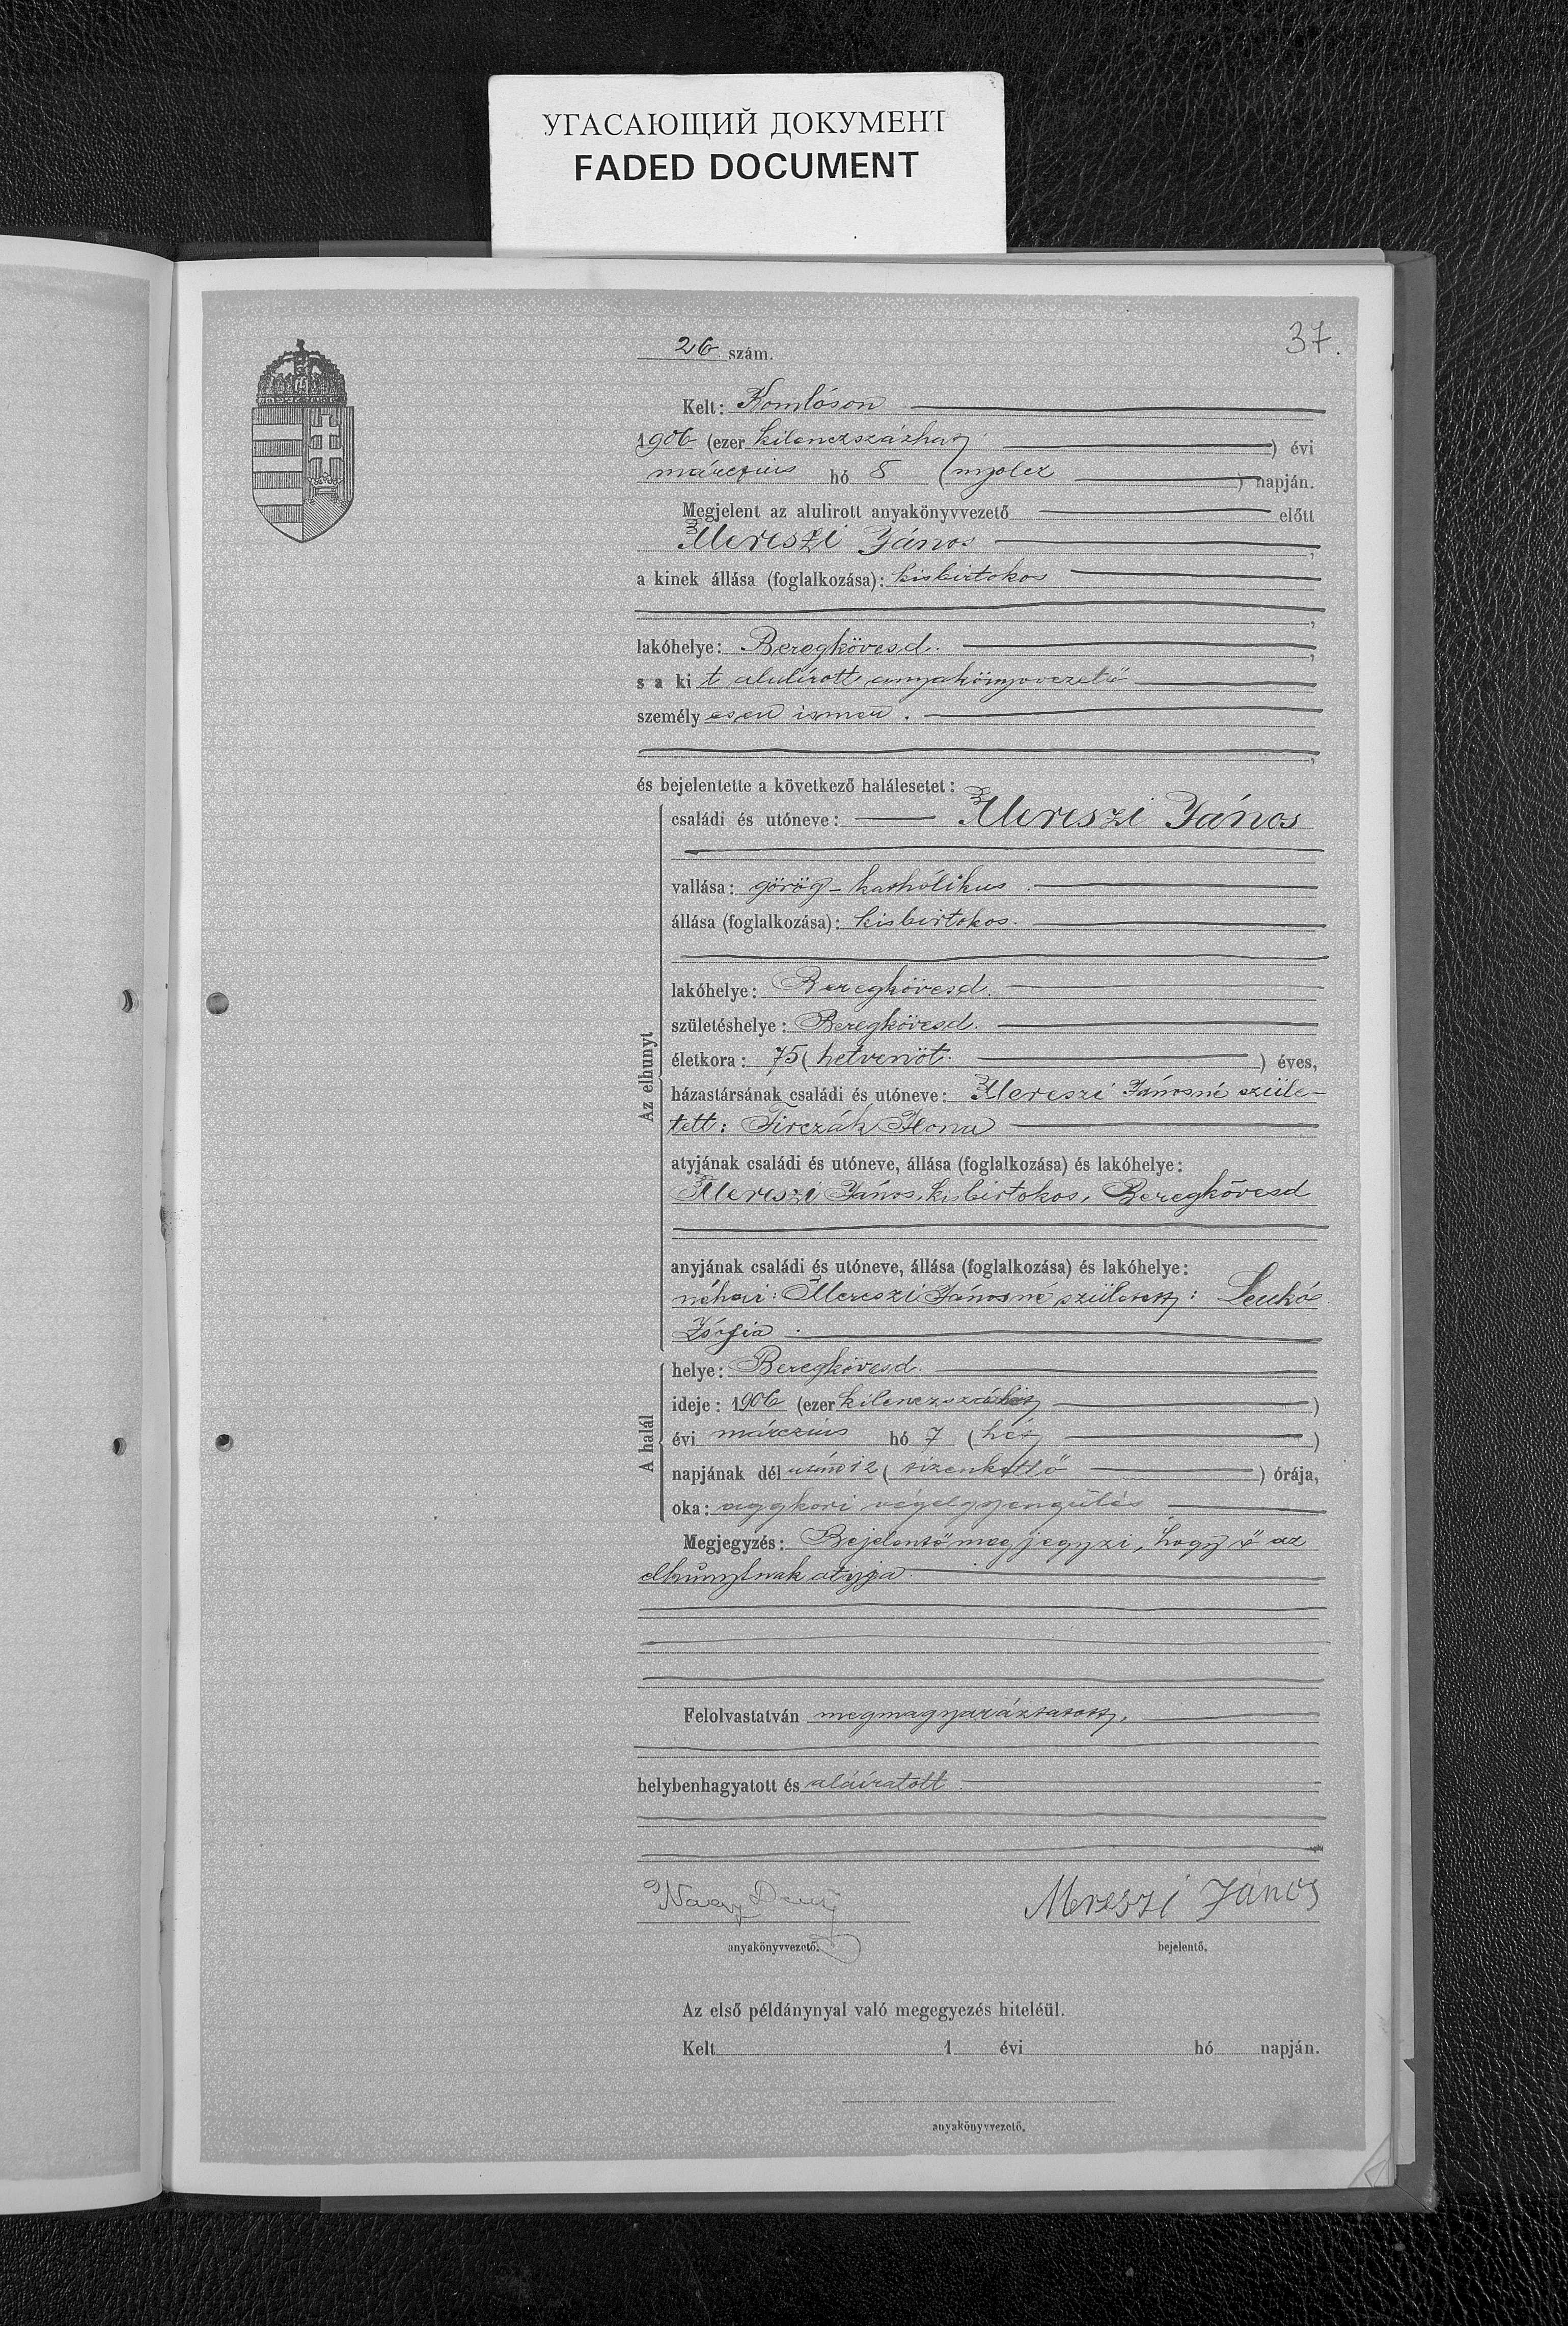 УГАСАЮЩИЙ ДОКУМЕНТ
FADED DOCUMENT
37.
26 szám.
Kelt: Komlóson
1906 (ezer kilenczszázhat) évi
márczius hó 8 (nyolcz) napján.
Megjelent az alulirott anyakönyvvezető előtt
Mereszi János,
a kinek állása (foglalkozása): kisbirtokos
,
lakóhelye: Beregkövesd.,
s a ki t alulírott anyakönyvvezető
személyesen ismer.
,
és bejelentette a következő halálesetet:
családi és utóneve: Mereszi János
vallása: görög-katholikus.
állása (foglalkozása): kisbirtokos.
lakóhelye: Beregkövesd.
születéshelye: Beregkövesd.
Az elhunyt
életkora: 75 (hetvenöt) éves,
házastársának családi és utóneve: Mereszi Jánosné szüle-
tett: Firczák Ilona
atyjának családi és utóneve, állása (foglalkozása) és lakóhelye:
Mereszi János, kisbirtokos, Beregkövesd
anyjának családi és utóneve, állása (foglalkozása) és lakóhelye:
néhai: Mereszi Jánosné született: Leukó
Zsófia.
helye: Beregkövesd.
ideje: 1906 (ezer kilenczszázhat)
A halál
évi márczius hó 7 (hét)
napjának dél után 12 (tizenkettő) órája,
oka: aggkori végelgyengülés
Megjegyzés: Bejelentő megjegyzi, hogy ő az
elhunytnak atyja.
Felolvastatván megmagyaráztatott,
helybenhagyatott és aláíratott.
Nagy
Mereszi János
anyakönyvvezető.
bejelentő.
Az első példánynyal való megegyezés hiteléül.
Kelt 1 évi hó napján.
anyakönyvvezető.